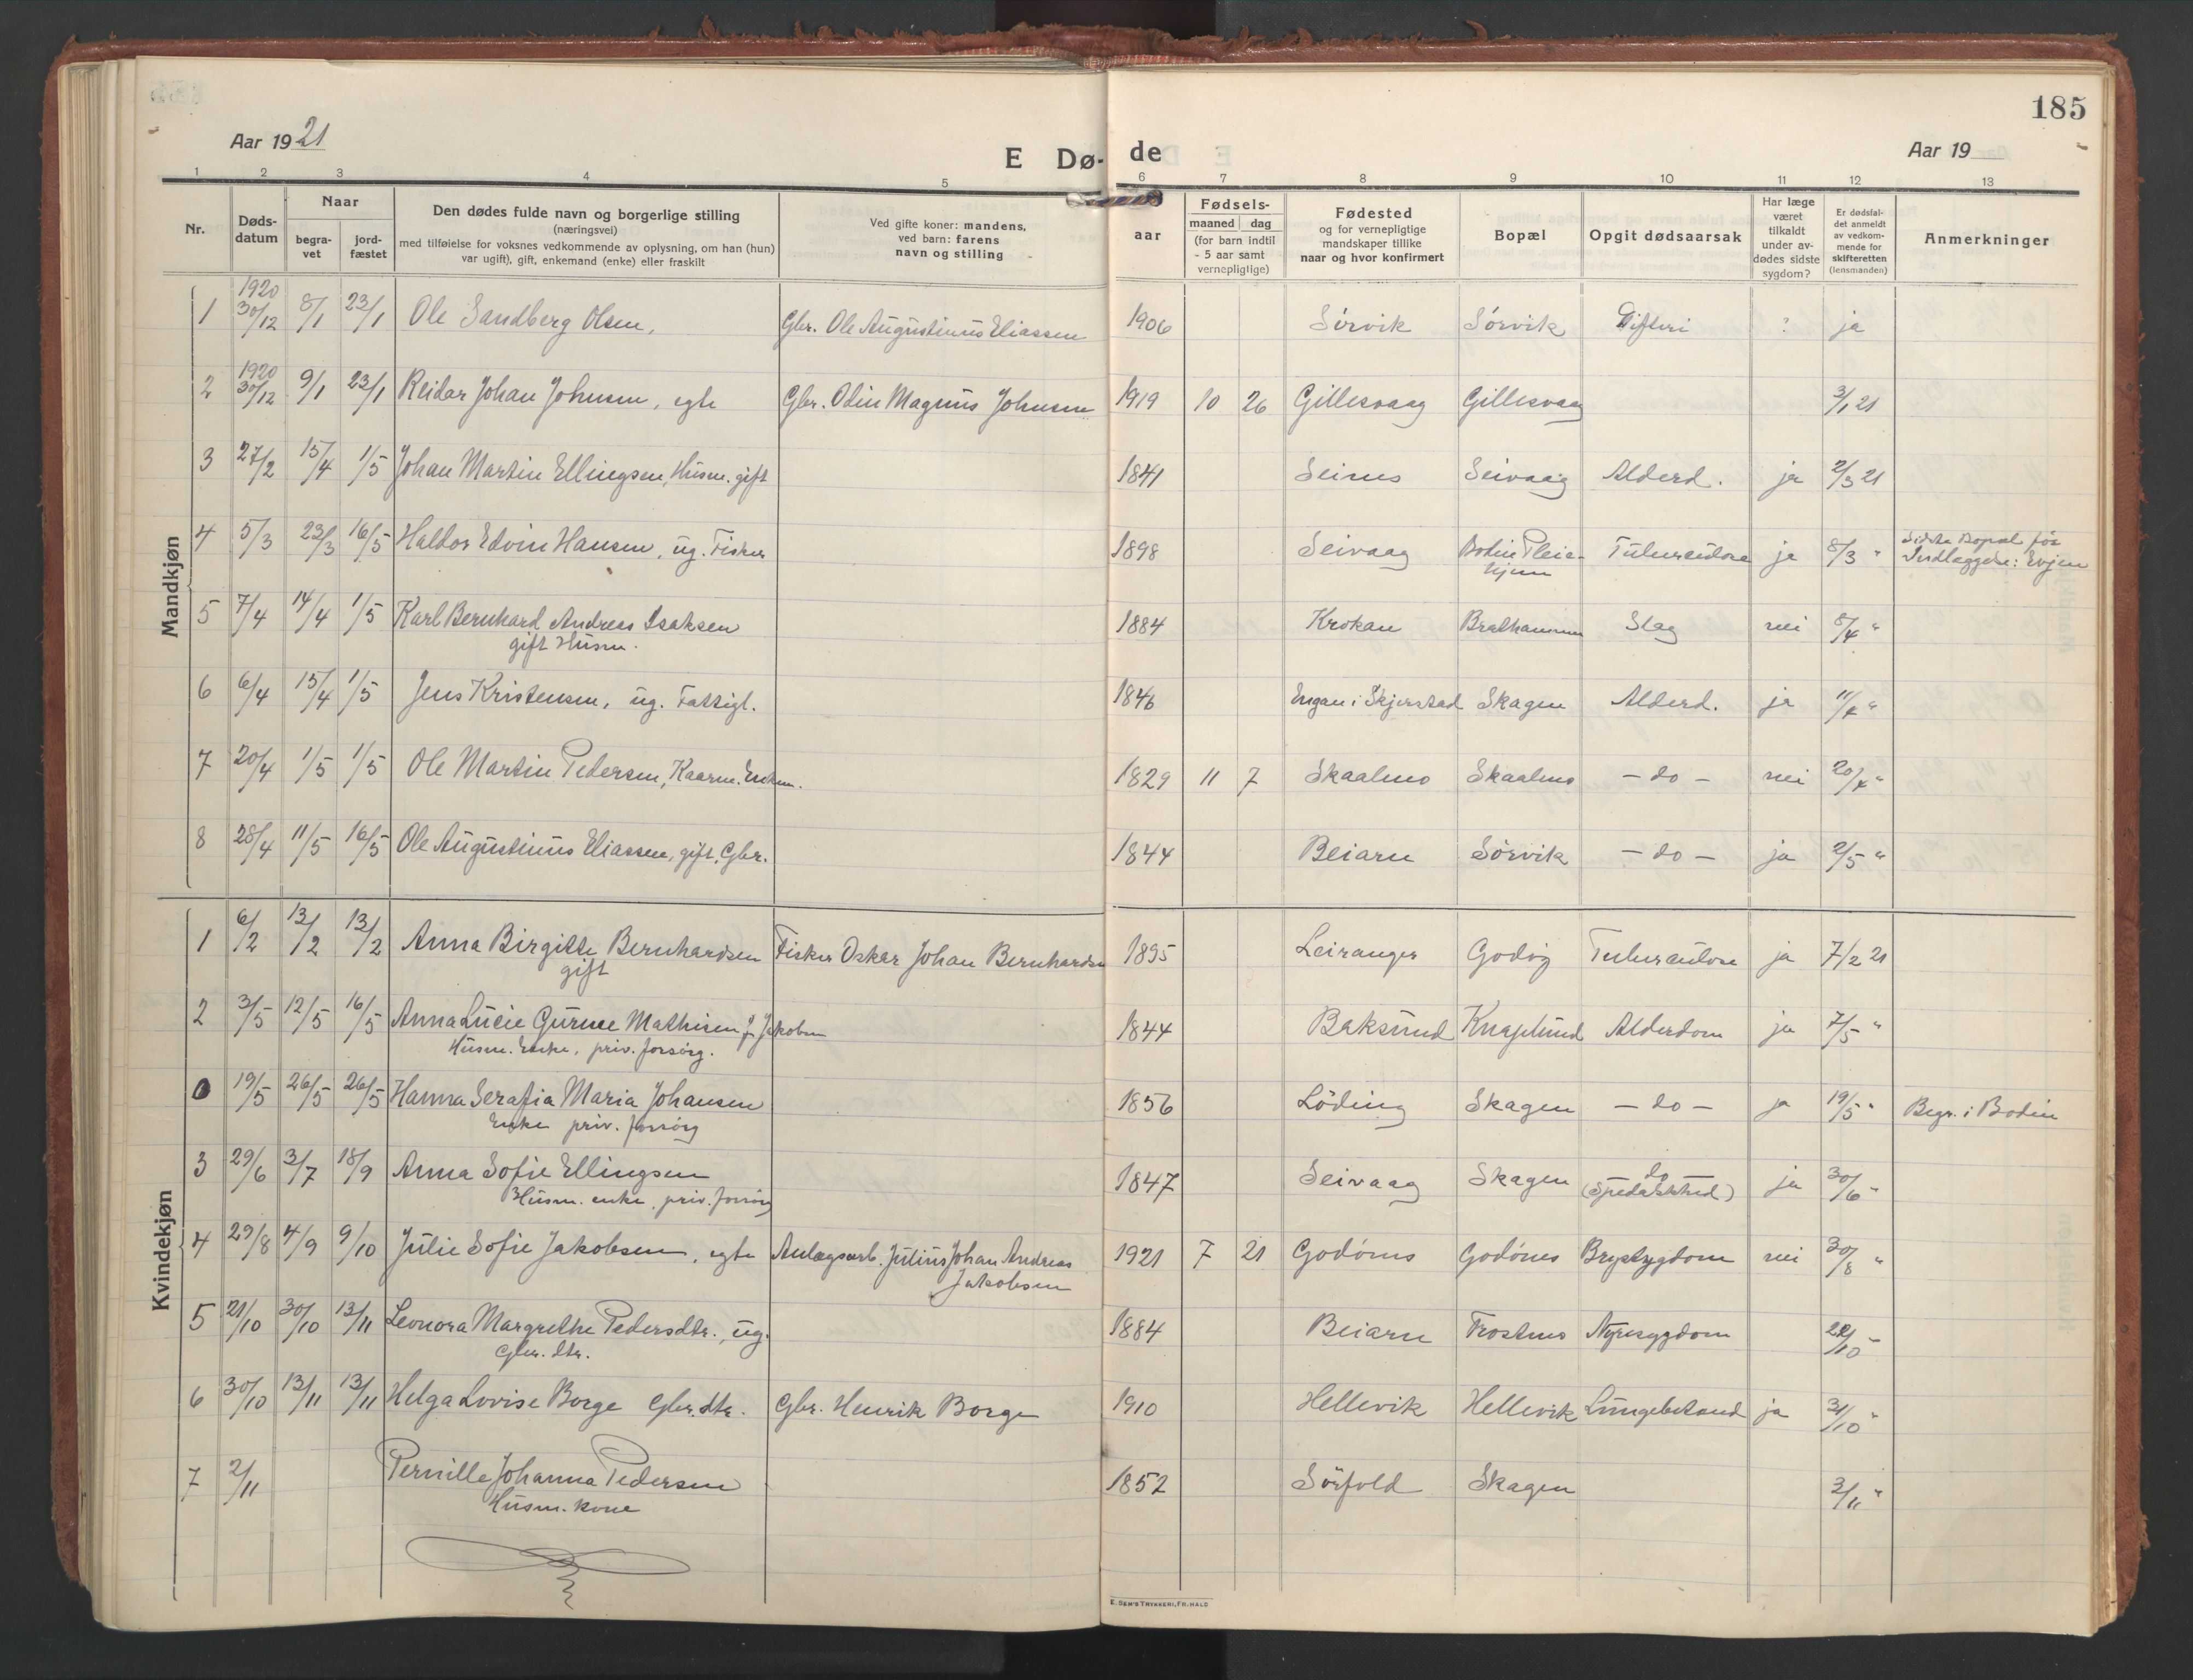 185
Aar 1921
E Dø- de
Aar 19
1 2 3 4 5 6 7 8 9 10 11 12 13
Nr.
Døds-
datum
Naar
begra-
vet
jord-
fæstet
Den dødes fulde navn og borgerlige stilling
(næringsvei)
med tilføielse for voksnes vedkommende av oplysning, om han (hun)
var ugift), gift, enkemand (enke) eller fraskilt
Ved gifte koner: mandens,
ved barn: farens
navn og stilling
aar
Fødsels-
maaned dag
(for barn indtil
- 5 aar samt
vernepligtige)
Fødested
og for vernepligtige
mandskaper tillike
naar og hvor konfirmert
Bopæl
Opgit dødsaarsak
Har læge
været
tilkaldt
under av-
dødes sidste
sygdom?
Er dødsfal-
det anmeldt
av vedkom-
mende for
skifteretten
(lensmanden)
Anmerkninger
Mandkjøn
1 1920 30/12 8/1 23/1 Ole Sandberg Olsen, Gbr. Ole Augustinus Eliassen 1906 Sörvik Sörvik Difteri ? ja
2 1920 30/12 9/1 23/1 Reidar Johan Johnsen, egte Gbr. Odin Magnus Johnsen 1919 10 26 Gillesvaag Gillesvaag 3/1 21
3 27/2 15/4 1/5 Johan Martin Ellingsen, Husm. gift 1841 Seines Seivaag Alderd. ja 2/3 21
4 5/3 23/3 16/5 Haldor Edvin Hansen, ug. Fisker 1898 Seivaag Bodin Pleie- Tuberculose ja 8/3 " Sidste Bopæl för
hjem Indlæggelse: Evjen
5 7/4 14/4 1/5 Karl Bernhard Andreas Isaksen 1884 Krokan Brathammer Slag nei 8/4 "
gift Husm.
6 6/4 15/4 1/5 Jens Kristensen, ug. Fattigl. 1846 Engan i Skjerstad Skagen Alderd. ja 11/4 "
7 20/4 1/5 1/5 Ole Martin Pedersen, Kaarm. Enkem. 1829 11 7 Skaalmo Skaalmo - do - nei 20/4 "
8 28/4 11/5 16/5 Ole Augustinus Eliassen, gift, Gbr. 1844 Beiarn Sörvik - do - ja 2/5 "
Kvindekjøn
1 6/2 13/2 13/2 Anna Birgitte Bernhardsen Fisker Oskar Johan Bernhardsen 1895 Leiranger Godöy Tuberculose ja 7/2 21
gift
2 3/5 12/5 16/5 Anna Lucie Gurine Mathisen f. Jakobsen 1844 Baksund Knaplund Alderdom ja 7/5 "
Husm. Enke, priv. forsörg.
0 19/5 26/5 26/5 Hanna Serafia Maria Johansen 1856 Löding Skagen - do - ja 19/5 " Begr. i Bodin
Enke priv. forsörg
3 29/6 3/7 18/9 Anna Sofie Ellingsen 1847 Seivaag Skagen - do - ja 30/6 "
Husm. enke, priv. forsörg (Spedalskhed)
4 29/8 4/9 9/10 Julie Sofie Jakobsen, egte Anlægsarb. Julius Johan Andreas 1921 7 21 Godönes Godönes Brystsygdom nei 30/8 "
Jakobsen
5 21/10 30/10 13/11 Leonora Margrethe Pedersdtr., ug. 1884 Beiarn Trostmo Nyresygdom 22/10 -
Gbr. dtr.
6 30/10 13/11 13/11 Helga Lovise Borge Gbr. dtr. Gbr. Henrik Borge 1910 Hellevik Hellevik Lungebetænd ja 31/10 "
7 2/11 Pernille Johanna Pedersen 1852 Sörfold Skagen 3/11 "
Husm. kone
E. SEM'S TRYKKERI, FR.HALD